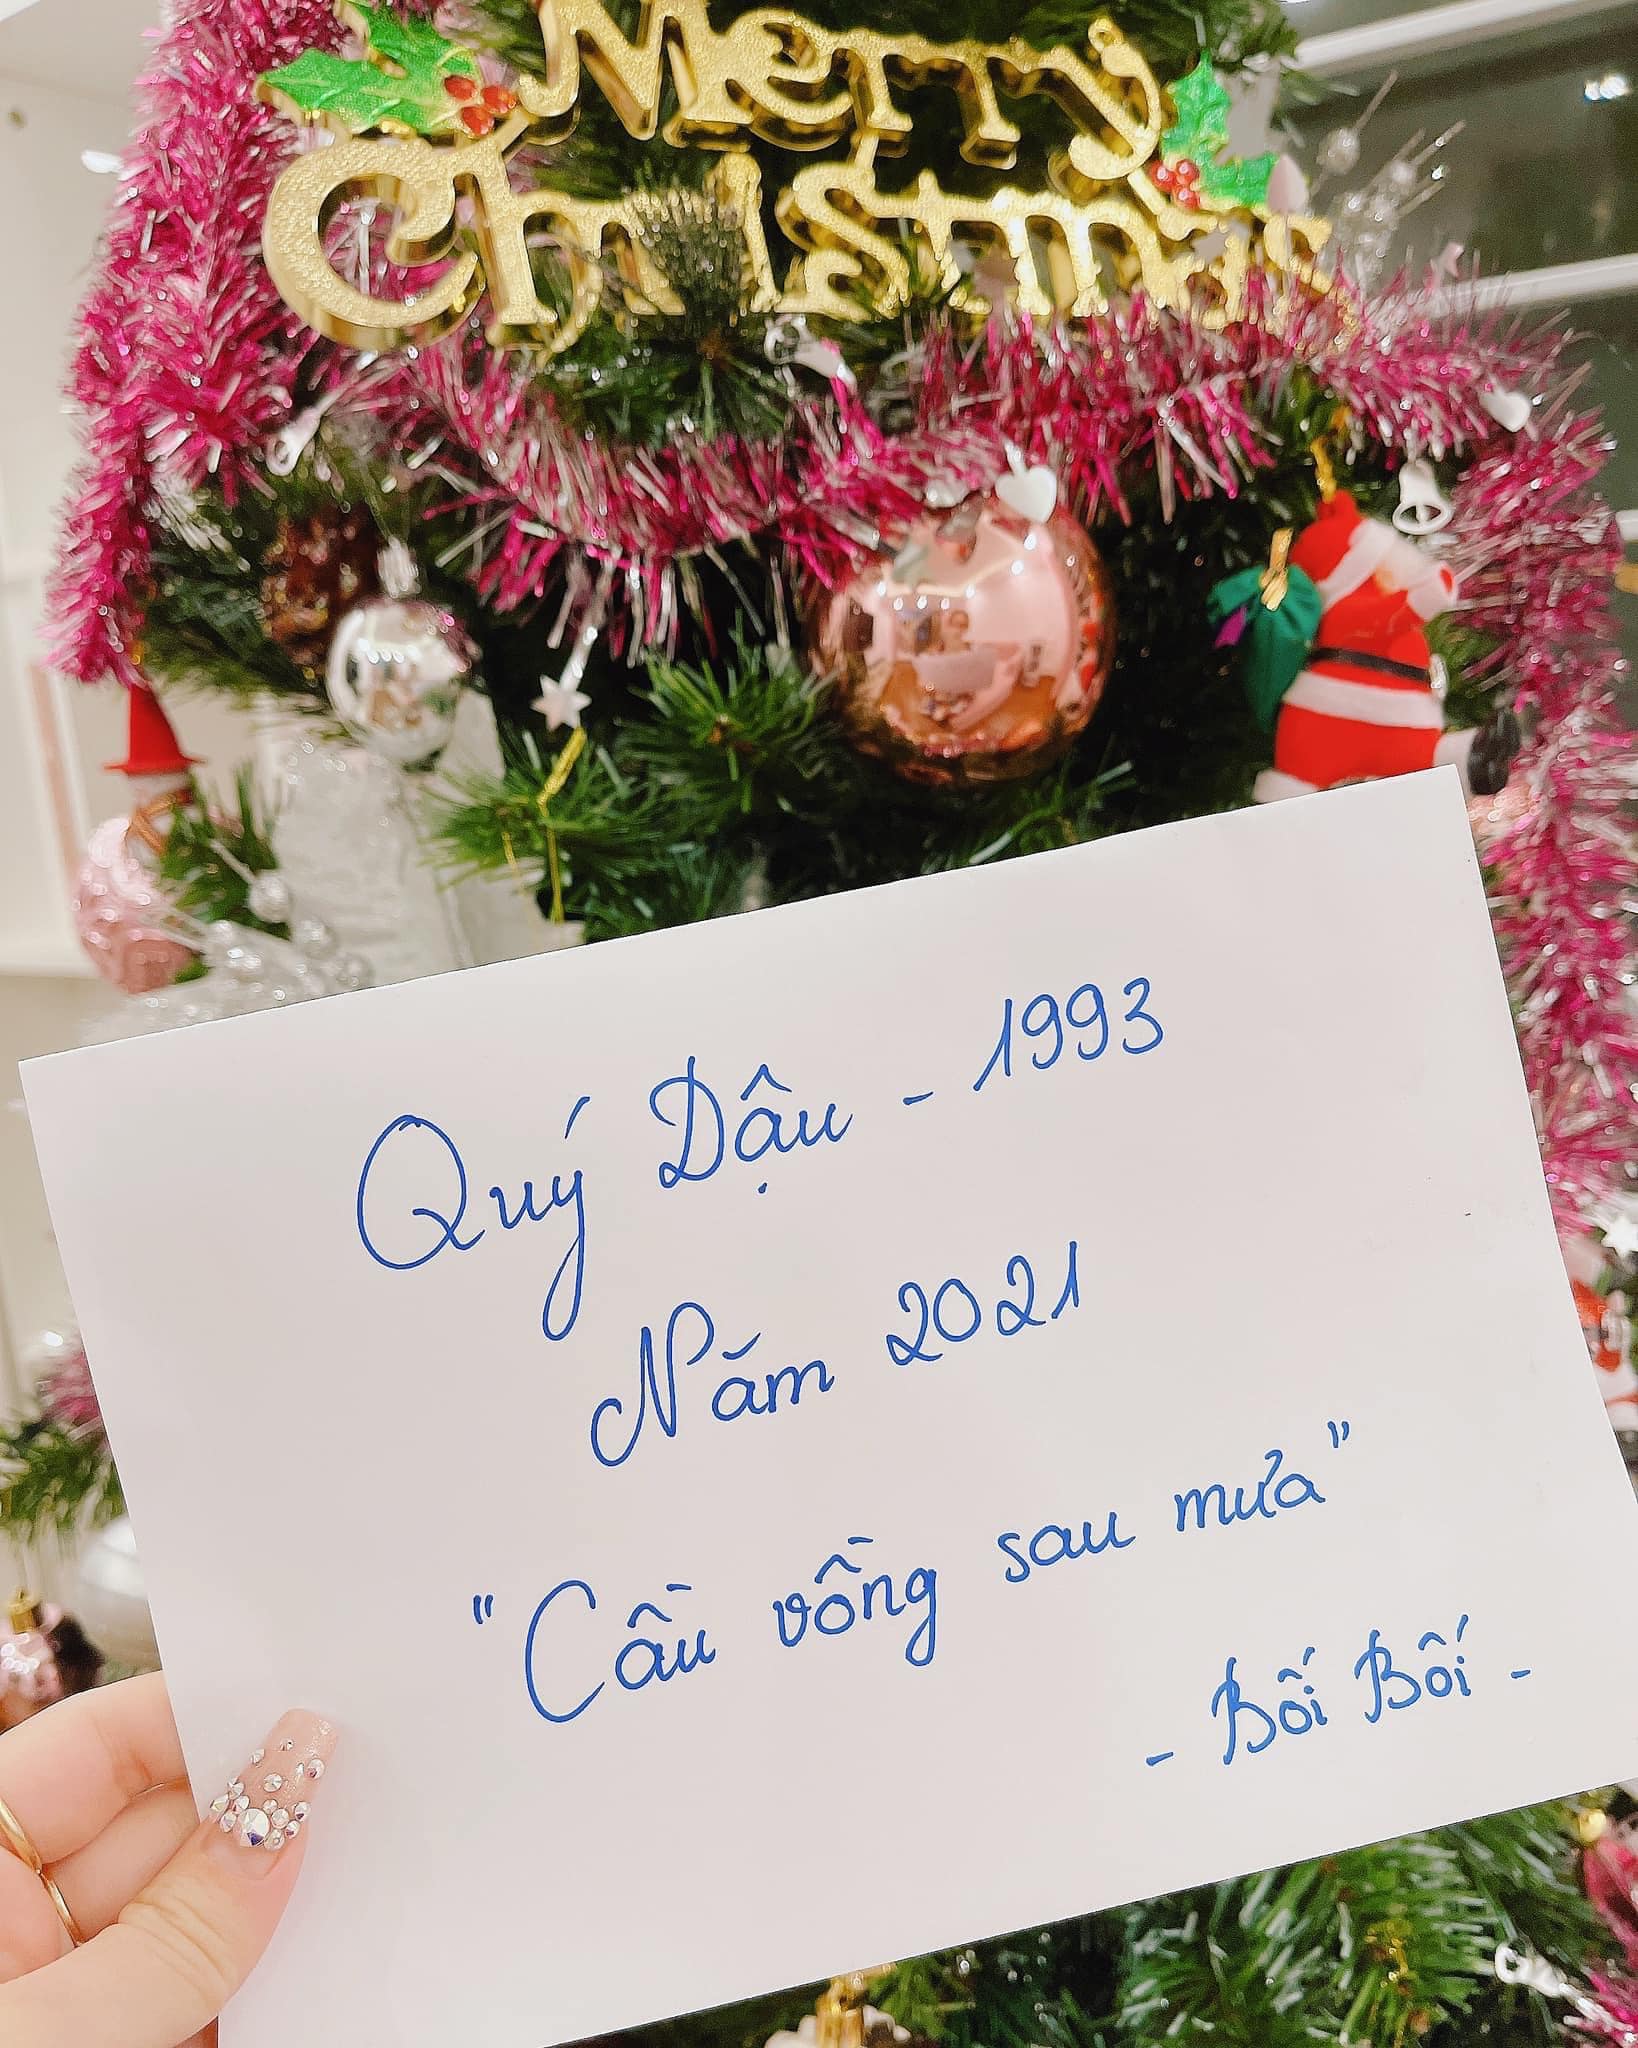 Merry
Christmas
Quý Dậu - 1993
Năm 2021
"Cầu vồng sau mưa"
- Bối Bối -